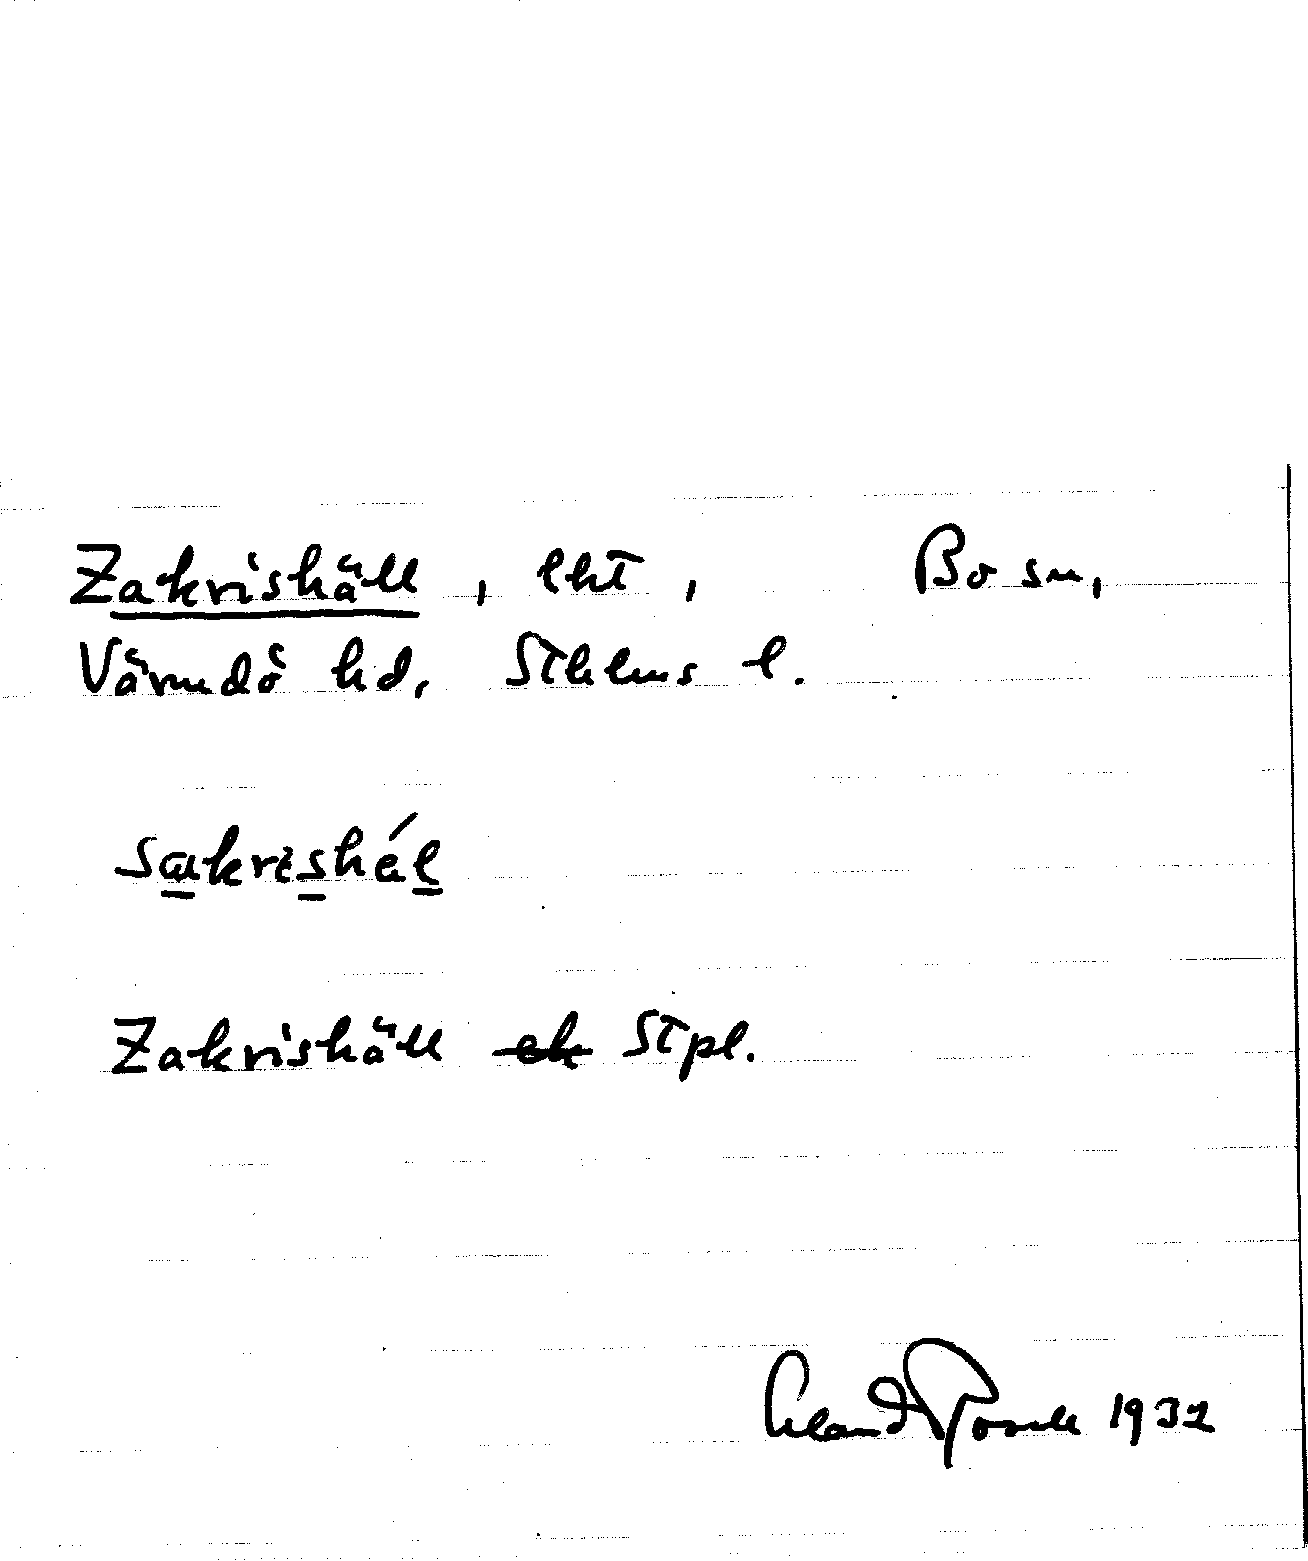 Zakrishäll, lht, Bo sn,
Värmdö hd, Sthlms l.
sakrishél
Zakrishäll ek Stpl.
1932